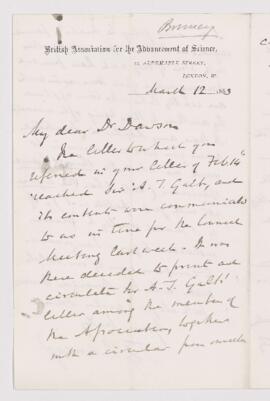 Bonney
British Association for the Advancement of Science,
22 ALBEMARLE STREET,
LONDON, W.
March 12 1883
My dear Dr Dawson
The letter to which you
referred in your letter of Feb. 14th
reached Sir A. T. Galt, and
its contents were communicated
to us in time for the Council
Meeting last week. It was
there decided to print and
circulate Sir A. T. Galt's
letter among the members of
the Association together
with a circular from